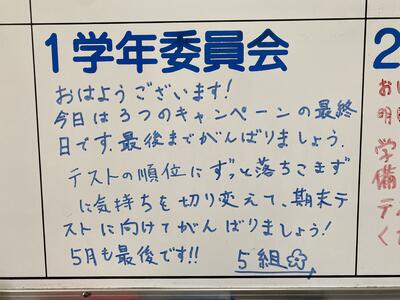 1学年委員会
おはようございます!
今日は3つのキャンペーンの最終
日です。最後までがんばりましょう。
テストの順位にずっと落ちこまず
に気持ちを切り変えて、期末テ
ストに向けてがんばりましょう!
5月も最後です!!
5組
2
お
明
学
備
テ
く